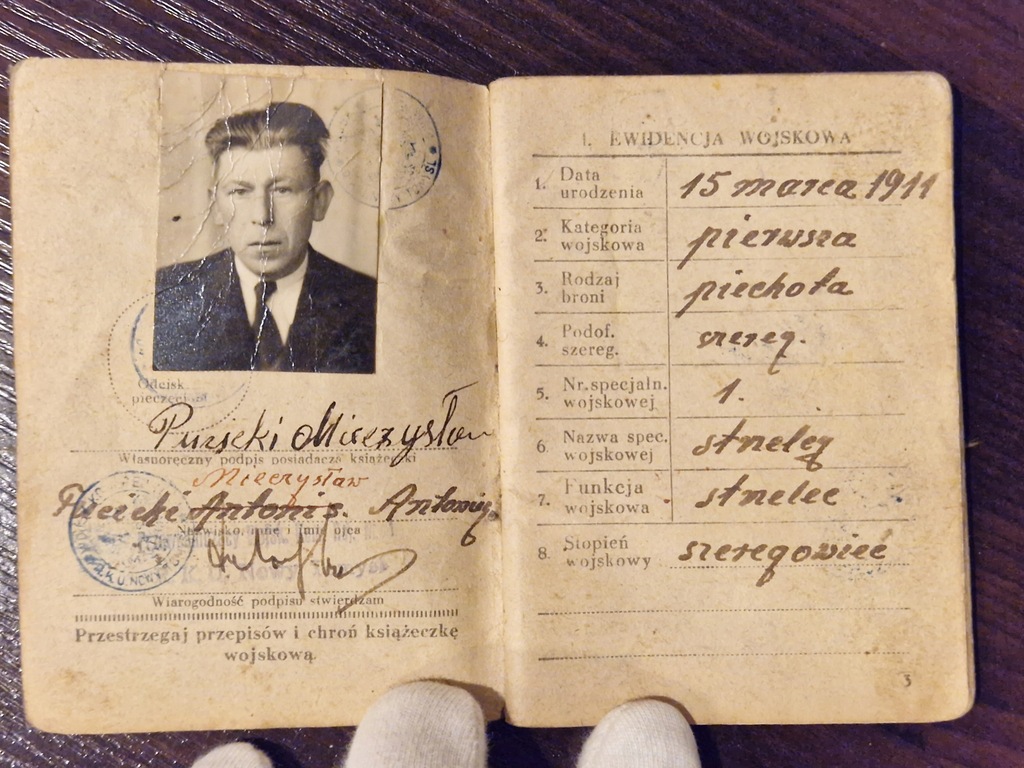 Odcisk
pieczęci
Mieczysław
Własnoręczny podpis posiadacza książeczki
Mieczysław
Antoni s. Antoniego
Nazwisko, imię i imię ojca
Wiarogodność podpisu stwierdzam
Przestrzegaj przepisów i chroń książeczkę
wojskową
I. EWIDENCJA WOJSKOWA
1. Data urodzenia 15 marca 1911
2. Kategoria wojskowa pierwsza
3. Rodzaj broni piechota
4. Podof. szereg. szereg.
5. Nr. specjaln. wojskowej 1.
6. Nazwa spec. wojskowej
7. Funkcja wojskowa strzelec
8. Stopień wojskowy szeregowiec
3